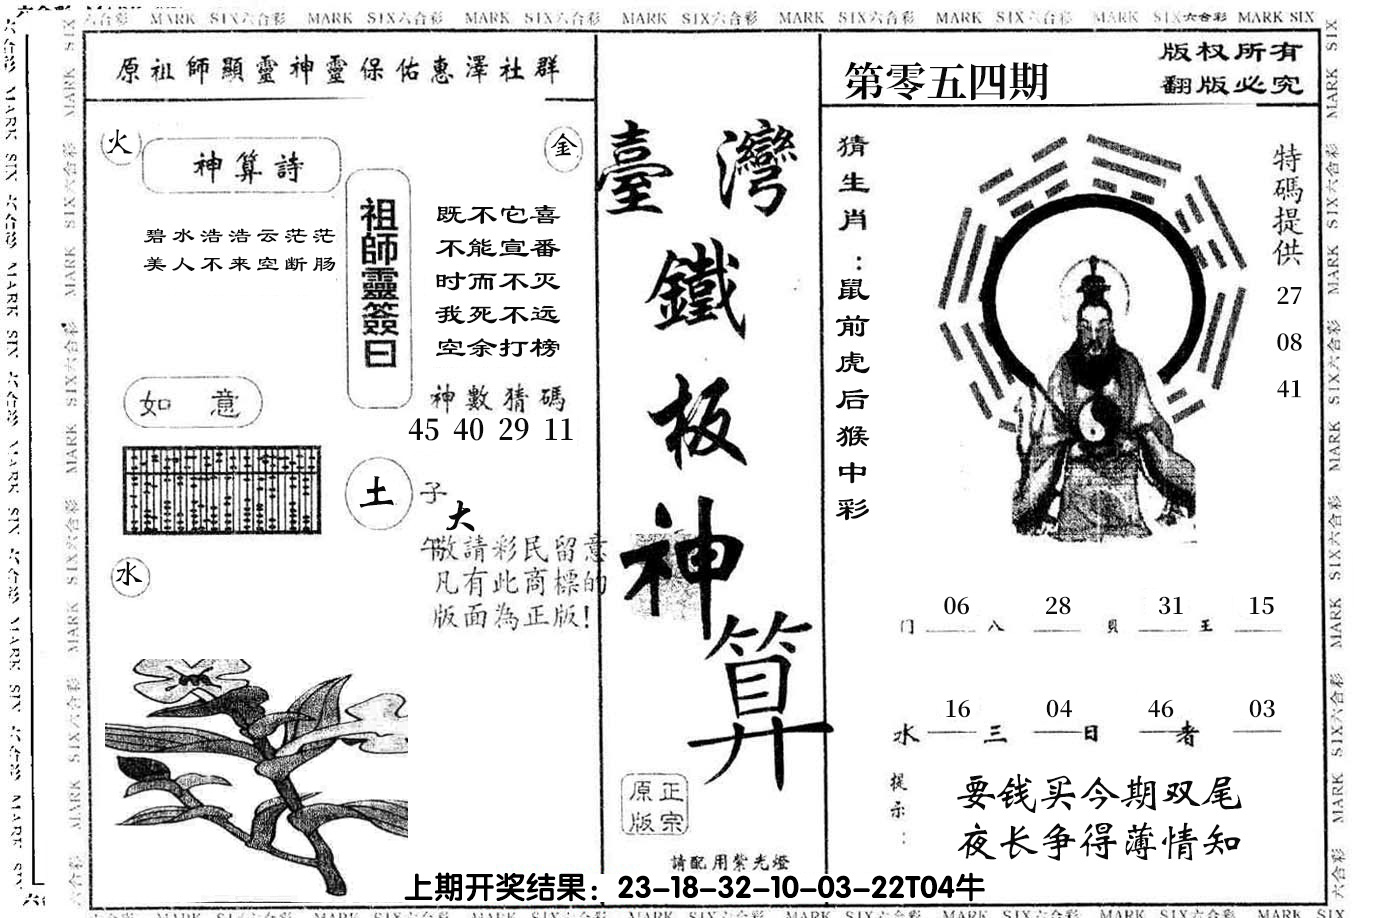 MARK SIX六合彩 MARK SIX六合彩 MARK SIX六合彩 MARK SIX六合彩 MARK SIX六合彩 MARK SIX六合彩 MARK SIX六合彩 MARK SIX
原祖師顯靈神靈保佑惠澤社群
火
金
神算詩
碧水浩浩云茫茫
美人不来空断肠
祖師靈簽曰
既不它喜
不能宣番
时而不灭
我死不远
空余打榜
神數猜碼
45 40 29 11
如意
土
子
大
午
水
敬請彩民留意
凡有此商標的
版面為正版!
臺灣
鐵
板
神
算
正宗
原版
請配用紫光燈
第零五四期
版权所有
翻版必究
猜生肖:鼠前虎后猴中彩
特碼提供
27
08
41
06 28 31 15
门 八 貝 王
16 04 46 03
水 三 日 者
提示:
要钱买今期双尾
夜长争得薄情知
上期开奖结果：23-18-32-10-03-22T04牛